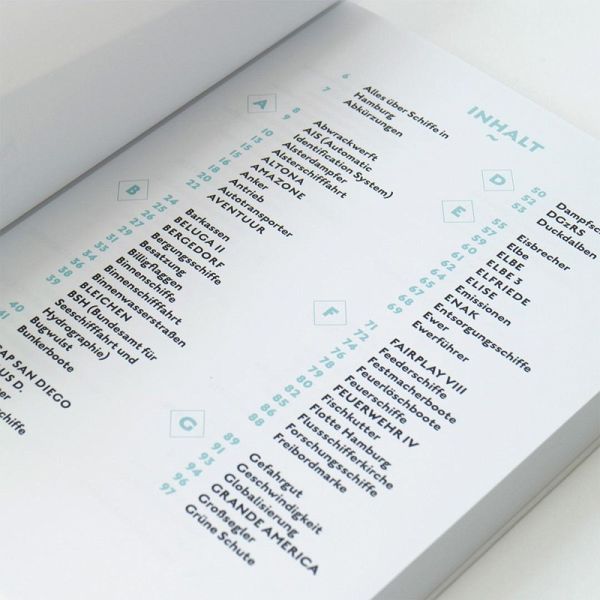 INHALT
6 Alles über Schiffe in
Hamburg
7 Abkürzungen
A
8 Abwrackwerft
9 AIS (Automatic
Identification System)
10 Alsterdampfer
Alsterschifffahrt
ALTONA
AMAZONE
Anker
Antrieb
20 Autotransporter
22 AVENTUUR
B
24 Barkassen
BELUGA II
BERGEDORF
Bergungsschiffe
Besatzung
Billigflaggen
Binnenschiffe
Binnenschiffe
Binnenwasserstraßen
BLEICHEN
BSH (Bundesamt für
Seeschifffahrt und
Hydrographie)
40 Bugwulst
41 Bunkerboote
AP SAN DIEGO
US D.
er
schiffe
D
50 Dampfsc
52 DGzRS
53 Duckdalben
E
55 Eisbrecher
Elbe
ELBE
ELBE 3
ELFRIEDE
ELISE
Emissionen
ENAK
Entsorgungsschiffe
68 Ewer
69 Ewerführer
F
71 FAIRPLAY VIII
72 Feederschiffe
74 Festmacherboote
76 Feuerlöschboote
78 Feuerschiffe
79 FEUERWEHR IV
80 Fischkutter
82 Flotte Hamburg
85 Flussschifferkirche
86 Forschungsschiffe
88 Freibordmarke
G
89 Gefahrgut
91 Geschwindigkeit
93 Globalisierung
94 GRANDE AMERICA
96 Großsegler
97 Grüne Schute